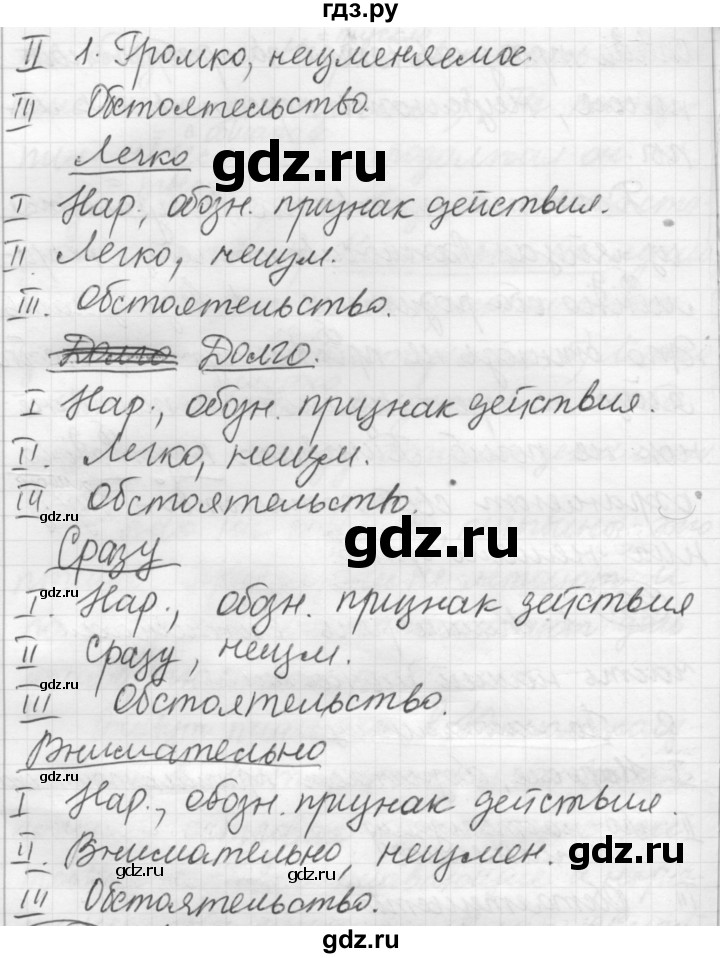 гдз.ру
II 1. Громко, неизменяемое.
III Обстоятельство.
Легко
gdz.ru
I Нар., обозн. признак действия.
II Легко, неизм.
III. Обстоятельство.
Долго Долго.
I Нар., обозн. признак действия.
II. Легко, неизм.
III. Обстоятельство.
gdz.ru
gdz.ru
Сразу
gdz.ru
I Нар., обозн. признак действия
II Сразу, неизм.
gdz.ru
III Обстоятельство.
Внимательно
gdz.ru
I Нар., обозн. признак действия.
II. Внимательно, неизмен.
gdz.ru
gdz.ru
III Обстоятельство.
gdz.ru